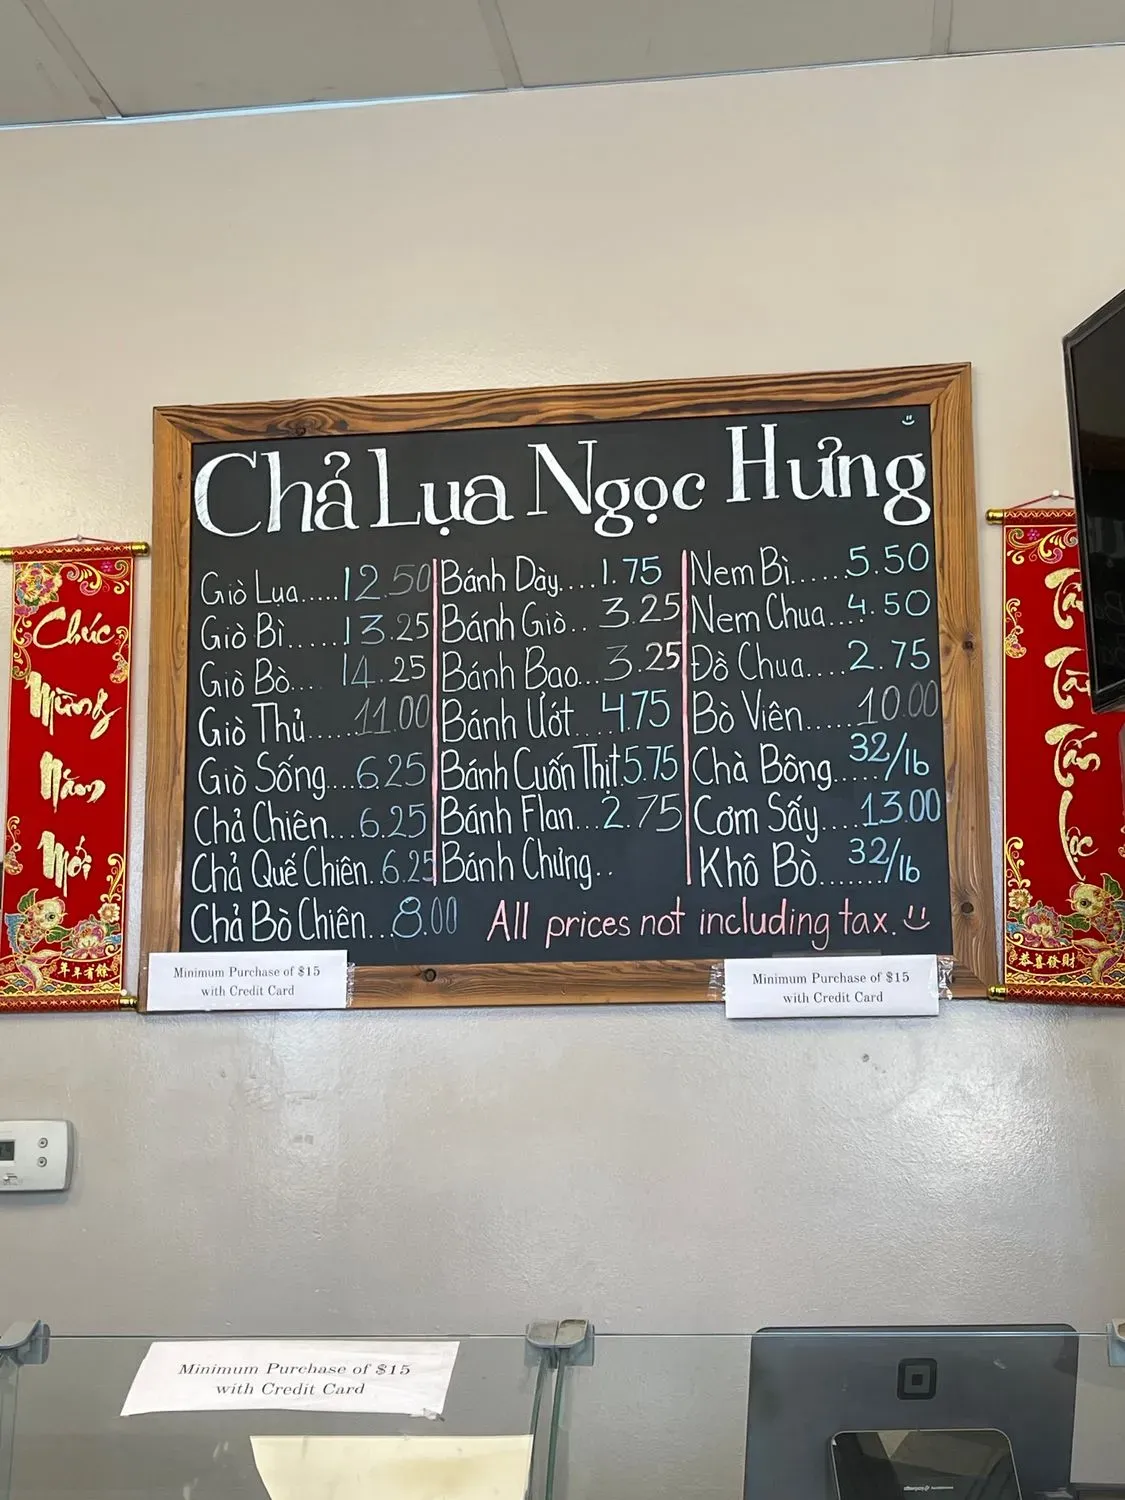 Chả Lụa Ngọc Hưng
Giò Lụa.....12.50
Giò Bì......13.25
Giò Bò....14.25
Giò Thủ......11.00
Giò Sống...6.25
Chả Chiên...6.25
Chả Quế Chiên..6.25
Chả Bò Chiên...8.00
Bánh Dày....1.75
Bánh Giò..3.25
Bánh Bao...3.25
Bánh Ướt..4.75
Bánh Cuốn Thịt.5.75
Bánh Flan...2.75
Bánh Chưng..
Nem Bì......5.50
Nem Chua...4.50
Đồ Chua....2.75
Bò Viên.....10.00
Chà Bông.....32/lb
Cơm Sấy....13.00
Khô Bò.......32/lb
All prices not including tax.
Chúc
Mừng
Năm
Mới
年年有餘
Tấn
Lộc
恭喜發財
Minimum Purchase of $15
with Credit Card
Minimum Purchase of $15
with Credit Card
Minimum Purchase of $15
with Credit Card